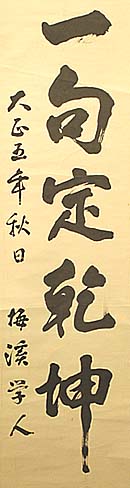 一句定乾坤
大正五年秋日 梅溪学人